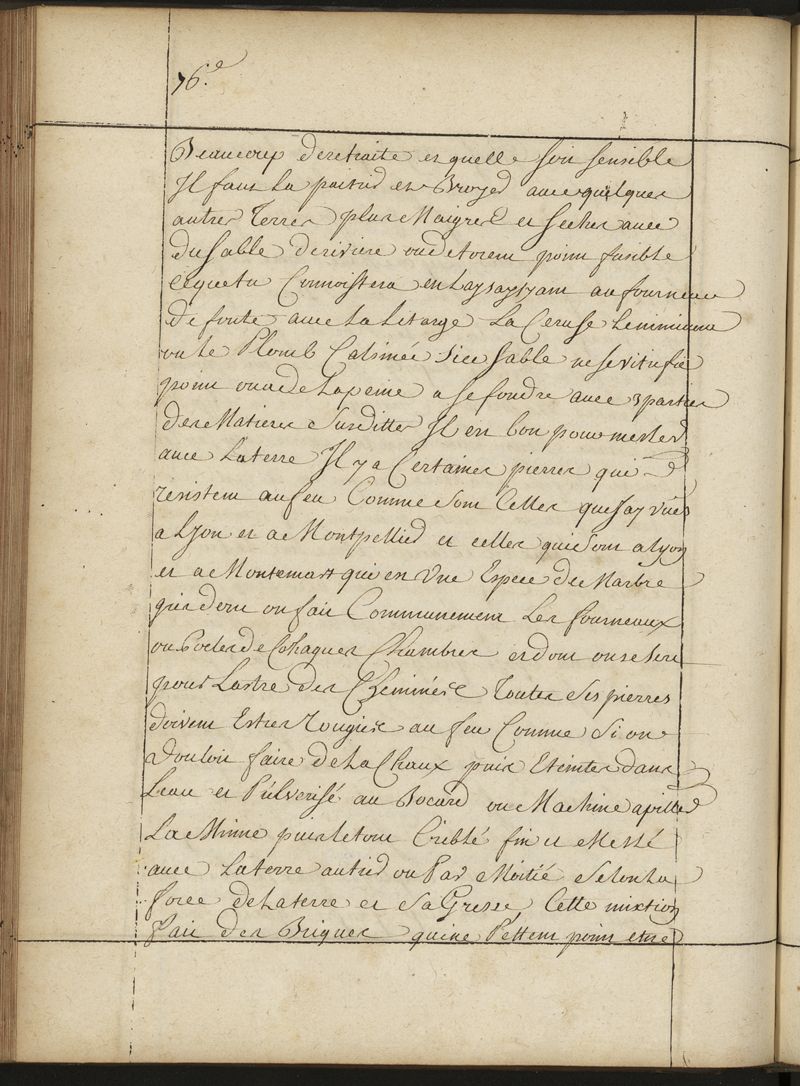 76.e
Beaucoup de retraite et quelle soit sensible
Il faut la paitrid et Broyed avec quelques
autres Terres plus Maigres et seches avec
du sable de riviere ou de torent point fusible
ce que tu Connoistera en Laysaysyant au fourneau
de fonte avec La Litarge La Ceruse Le minimum
ou le Plomb Calsinée si ce sable ne se vitrifie
point ou a de La peine a se fondre avec 3 parties
des Matieres Susdittes Il est bon pour mesled
avec La terre Il y a Certaines pierres qui
resistent au feu Comme Sont Celles que J'ay vües
a Lyon et a Montpellied et celles qui sont a Lyon
et a Montemart qui est Une Espece de Marbre
gris dont on fait Communement Les fourneaux
ou Poeles de Chaques Chambres et dont on se sert
pour Lastre des Cheminées Toutes Ses pierres
doivent Estres rougies au feu Comme Si on
Vouloit faire de La Chaux puis Eteintes dans
Leau et Pulverisé au Bocard ou Machine a pilled
La Minne puis le tout Criblé fin et Meslé
avec La terre au tied ou Par Moitié Selon La
force de La terre et Sa Gresse Cette mixtion
fait des Briques qui ne Pettent point etre